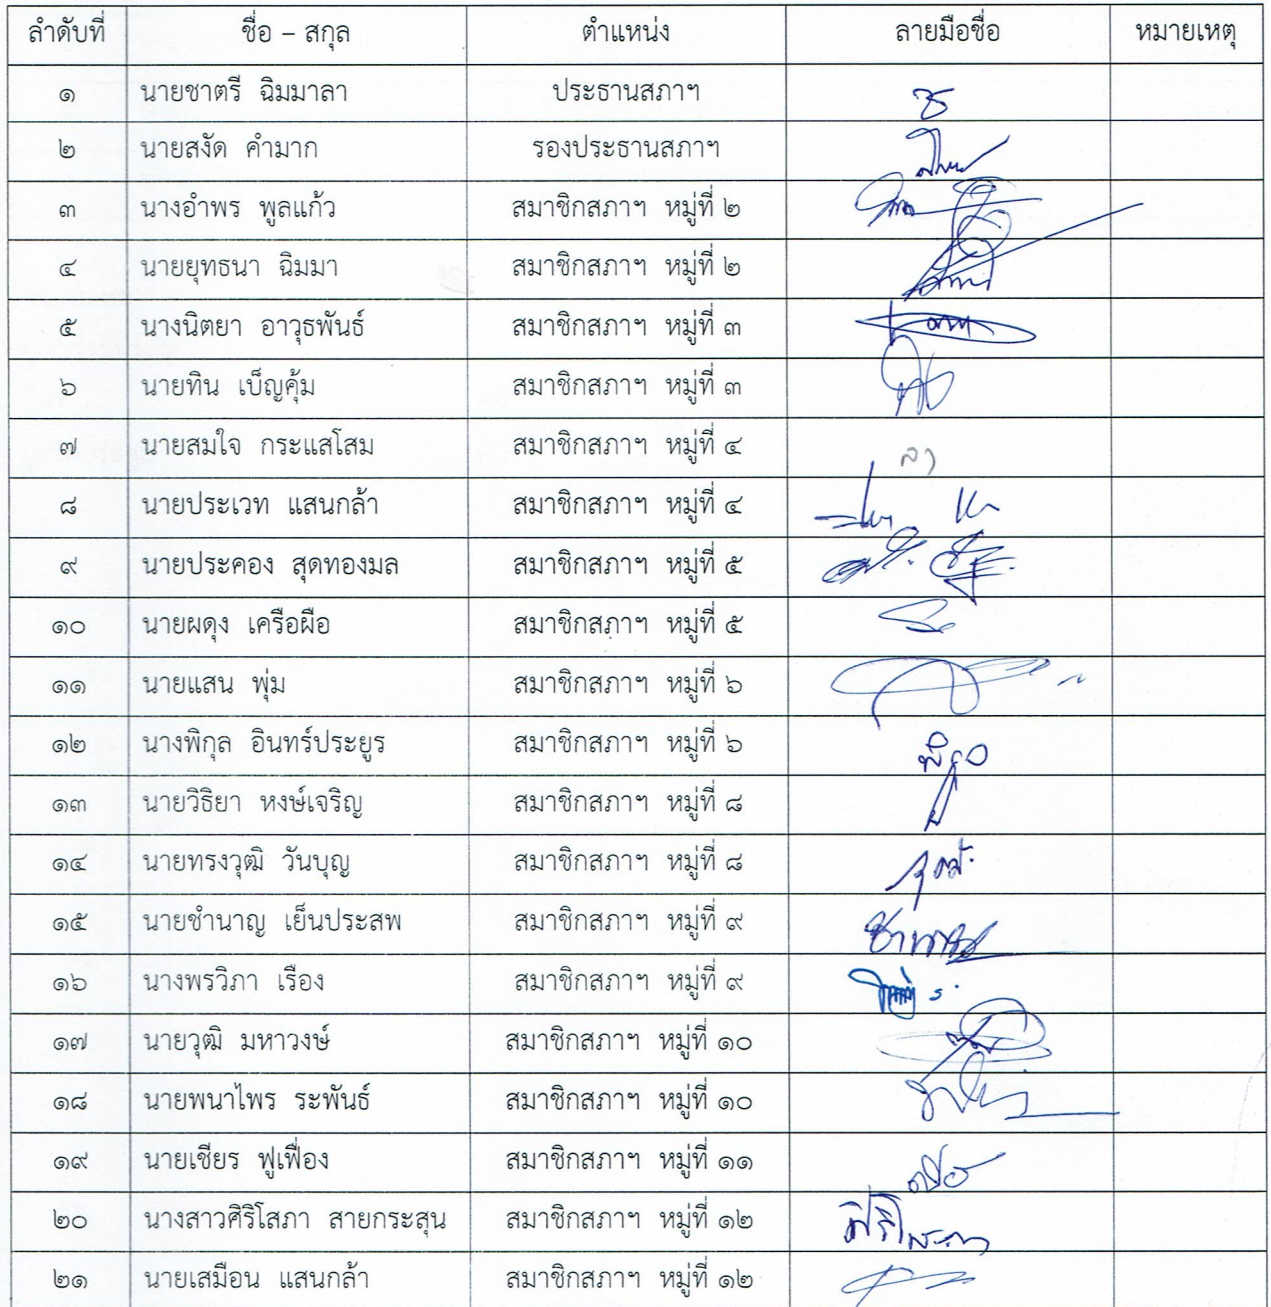 ลำดับที่ ชื่อ – สกุล ตำแหน่ง ลายมือชื่อ หมายเหตุ
๑ นายชาตรี ฉิมมาลา ประธานสภาฯ
๒ นายสงัด คำมาก รองประธานสภาฯ
๓ นางอำพร พูลแก้ว สมาชิกสภาฯ หมู่ที่ ๒
๔ นายยุทธนา ฉิมมา สมาชิกสภาฯ หมู่ที่ ๒
๕ นางนิตยา อาวุธพันธ์ สมาชิกสภาฯ หมู่ที่ ๓
๖ นายทิน เบ็ญคุ้ม สมาชิกสภาฯ หมู่ที่ ๓
๗ นายสมใจ กระแสโสม สมาชิกสภาฯ หมู่ที่ ๔ ลา
๘ นายประเวท แสนกล้า สมาชิกสภาฯ หมู่ที่ ๔
๙ นายประคอง สุดทองมล สมาชิกสภาฯ หมู่ที่ ๕
๑๐ นายผดุง เครือผือ สมาชิกสภาฯ หมู่ที่ ๕
๑๑ นายแสน พุ่ม สมาชิกสภาฯ หมู่ที่ ๖
๑๒ นางพิกุล อินทร์ประยูร สมาชิกสภาฯ หมู่ที่ ๖
๑๓ นายวิธิยา หงษ์เจริญ สมาชิกสภาฯ หมู่ที่ ๘
๑๔ นายทรงวุฒิ วันบุญ สมาชิกสภาฯ หมู่ที่ ๘
๑๕ นายชำนาญ เย็นประสพ สมาชิกสภาฯ หมู่ที่ ๙
๑๖ นางพรวิภา เรือง สมาชิกสภาฯ หมู่ที่ ๙
๑๗ นายวุฒิ มหาวงษ์ สมาชิกสภาฯ หมู่ที่ ๑๐
๑๘ นายพนาไพร ระพันธ์ สมาชิกสภาฯ หมู่ที่ ๑๐
๑๙ นายเชียร ฟูเฟื่อง สมาชิกสภาฯ หมู่ที่ ๑๑
๒๐ นางสาวศิริโสภา สายกระสุน สมาชิกสภาฯ หมู่ที่ ๑๒
๒๑ นายเสมือน แสนกล้า สมาชิกสภาฯ หมู่ที่ ๑๒